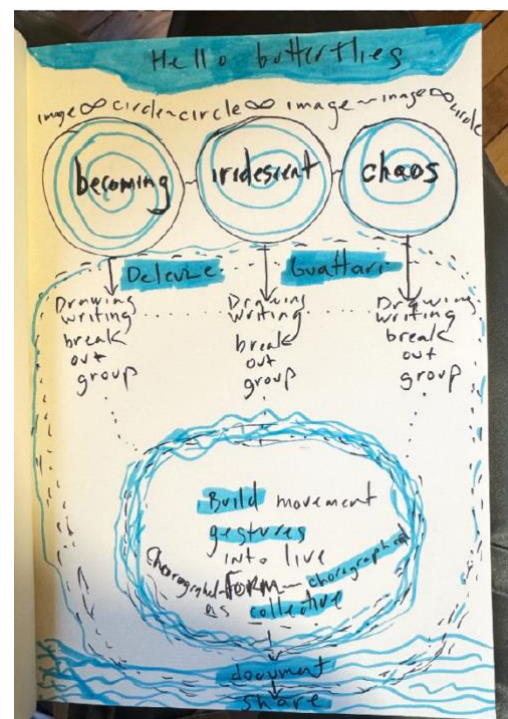 Hello butterflies
image ∞ circle~circle ∞ image~image ∞ circle
becoming
iridescent
chaos
Deleuze
Guattari
Drawing
writing
break
out
group
Drawing
writing
break
out
group
Drawing
writing
break
out
group
Build movement
gestures
into live
FORM
as collective
document
share